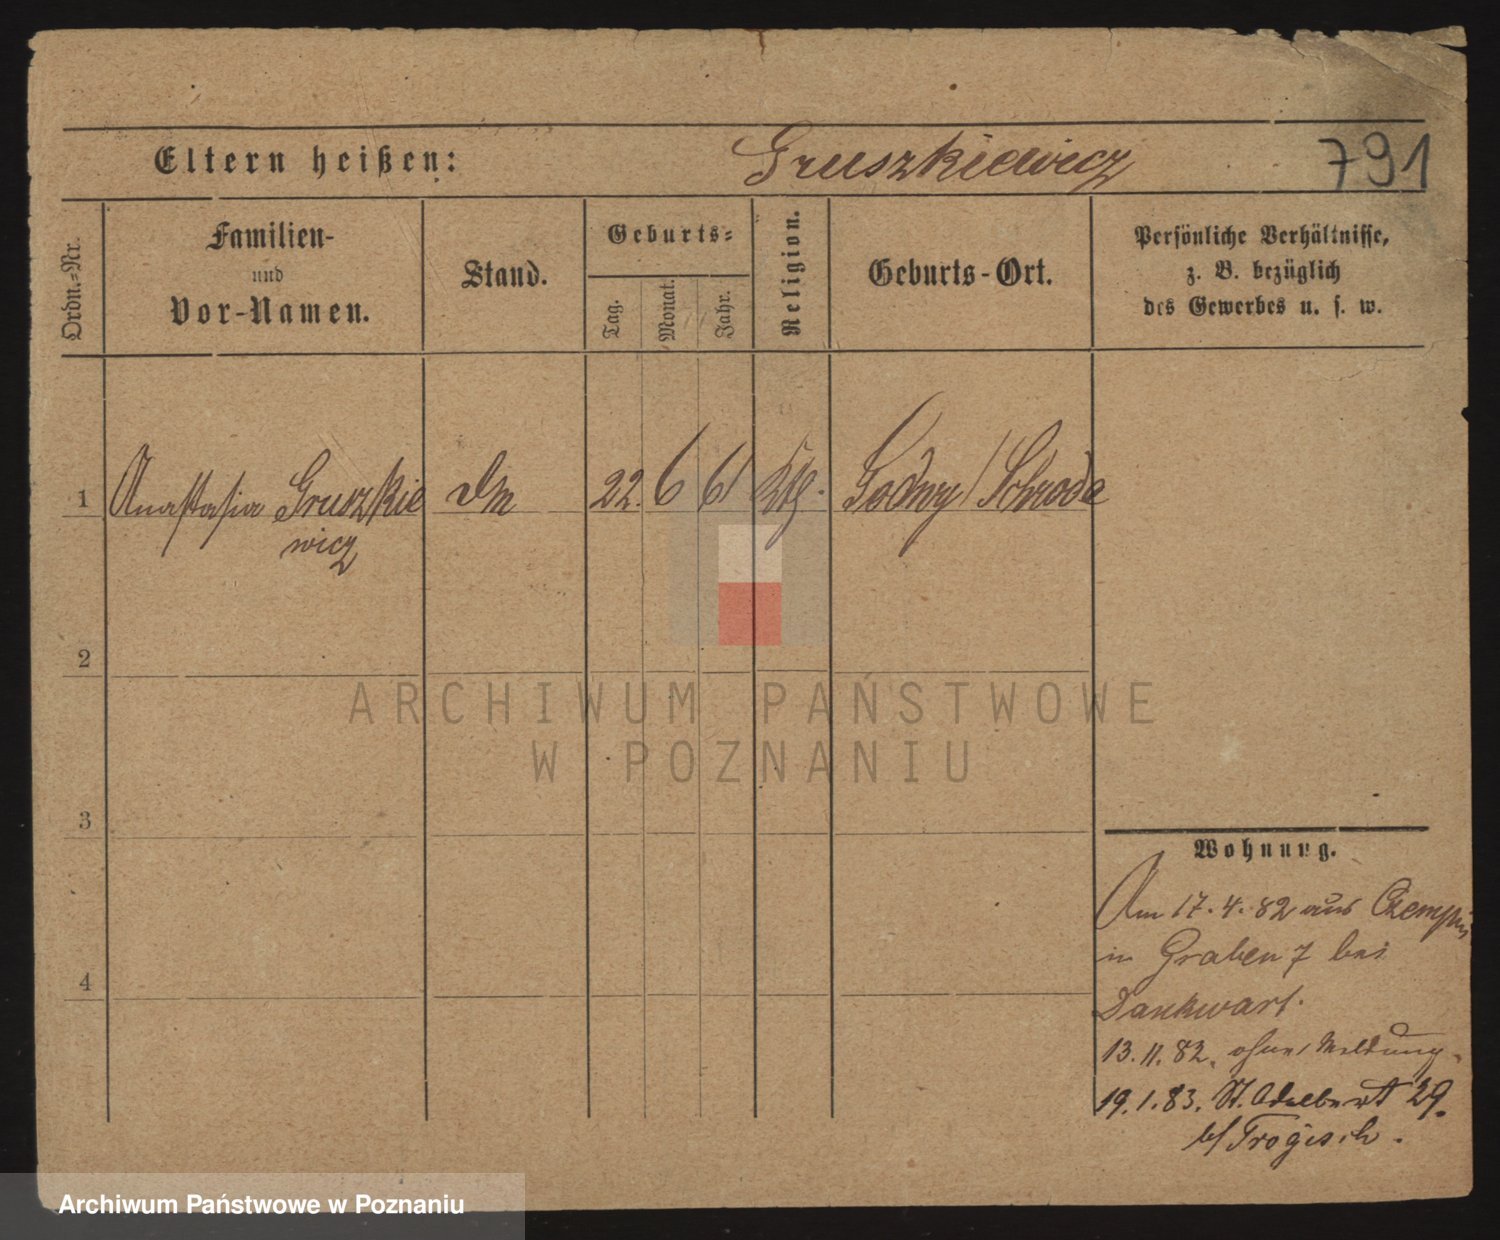 Eltern heißen: Gruszkiewicz 791
Ordn.-Nr.
Familien-
und
Vor-Namen.
Stand.
Geburts-
Tag.
Monat.
Jahr.
Religion.
Geburts-Ort.
Persönliche Verhältnisse,
z. B. bezüglich
des Gewerbes u. s. w.
1 Anastasia Gruszkie 22. 6 61 Schroda
wicz
2
ARCHIWUM PAŃSTWOWE
W POZNANIU
3
4
Wohnung.
Am 17.4.82 aus Czempin
in Graben 7 bei
Dankwart.
13.11.82. ohne Meldung.
19.1.83. St. Adalbert 29.
b/ Trogisch.
Archiwum Państwowe w Poznaniu